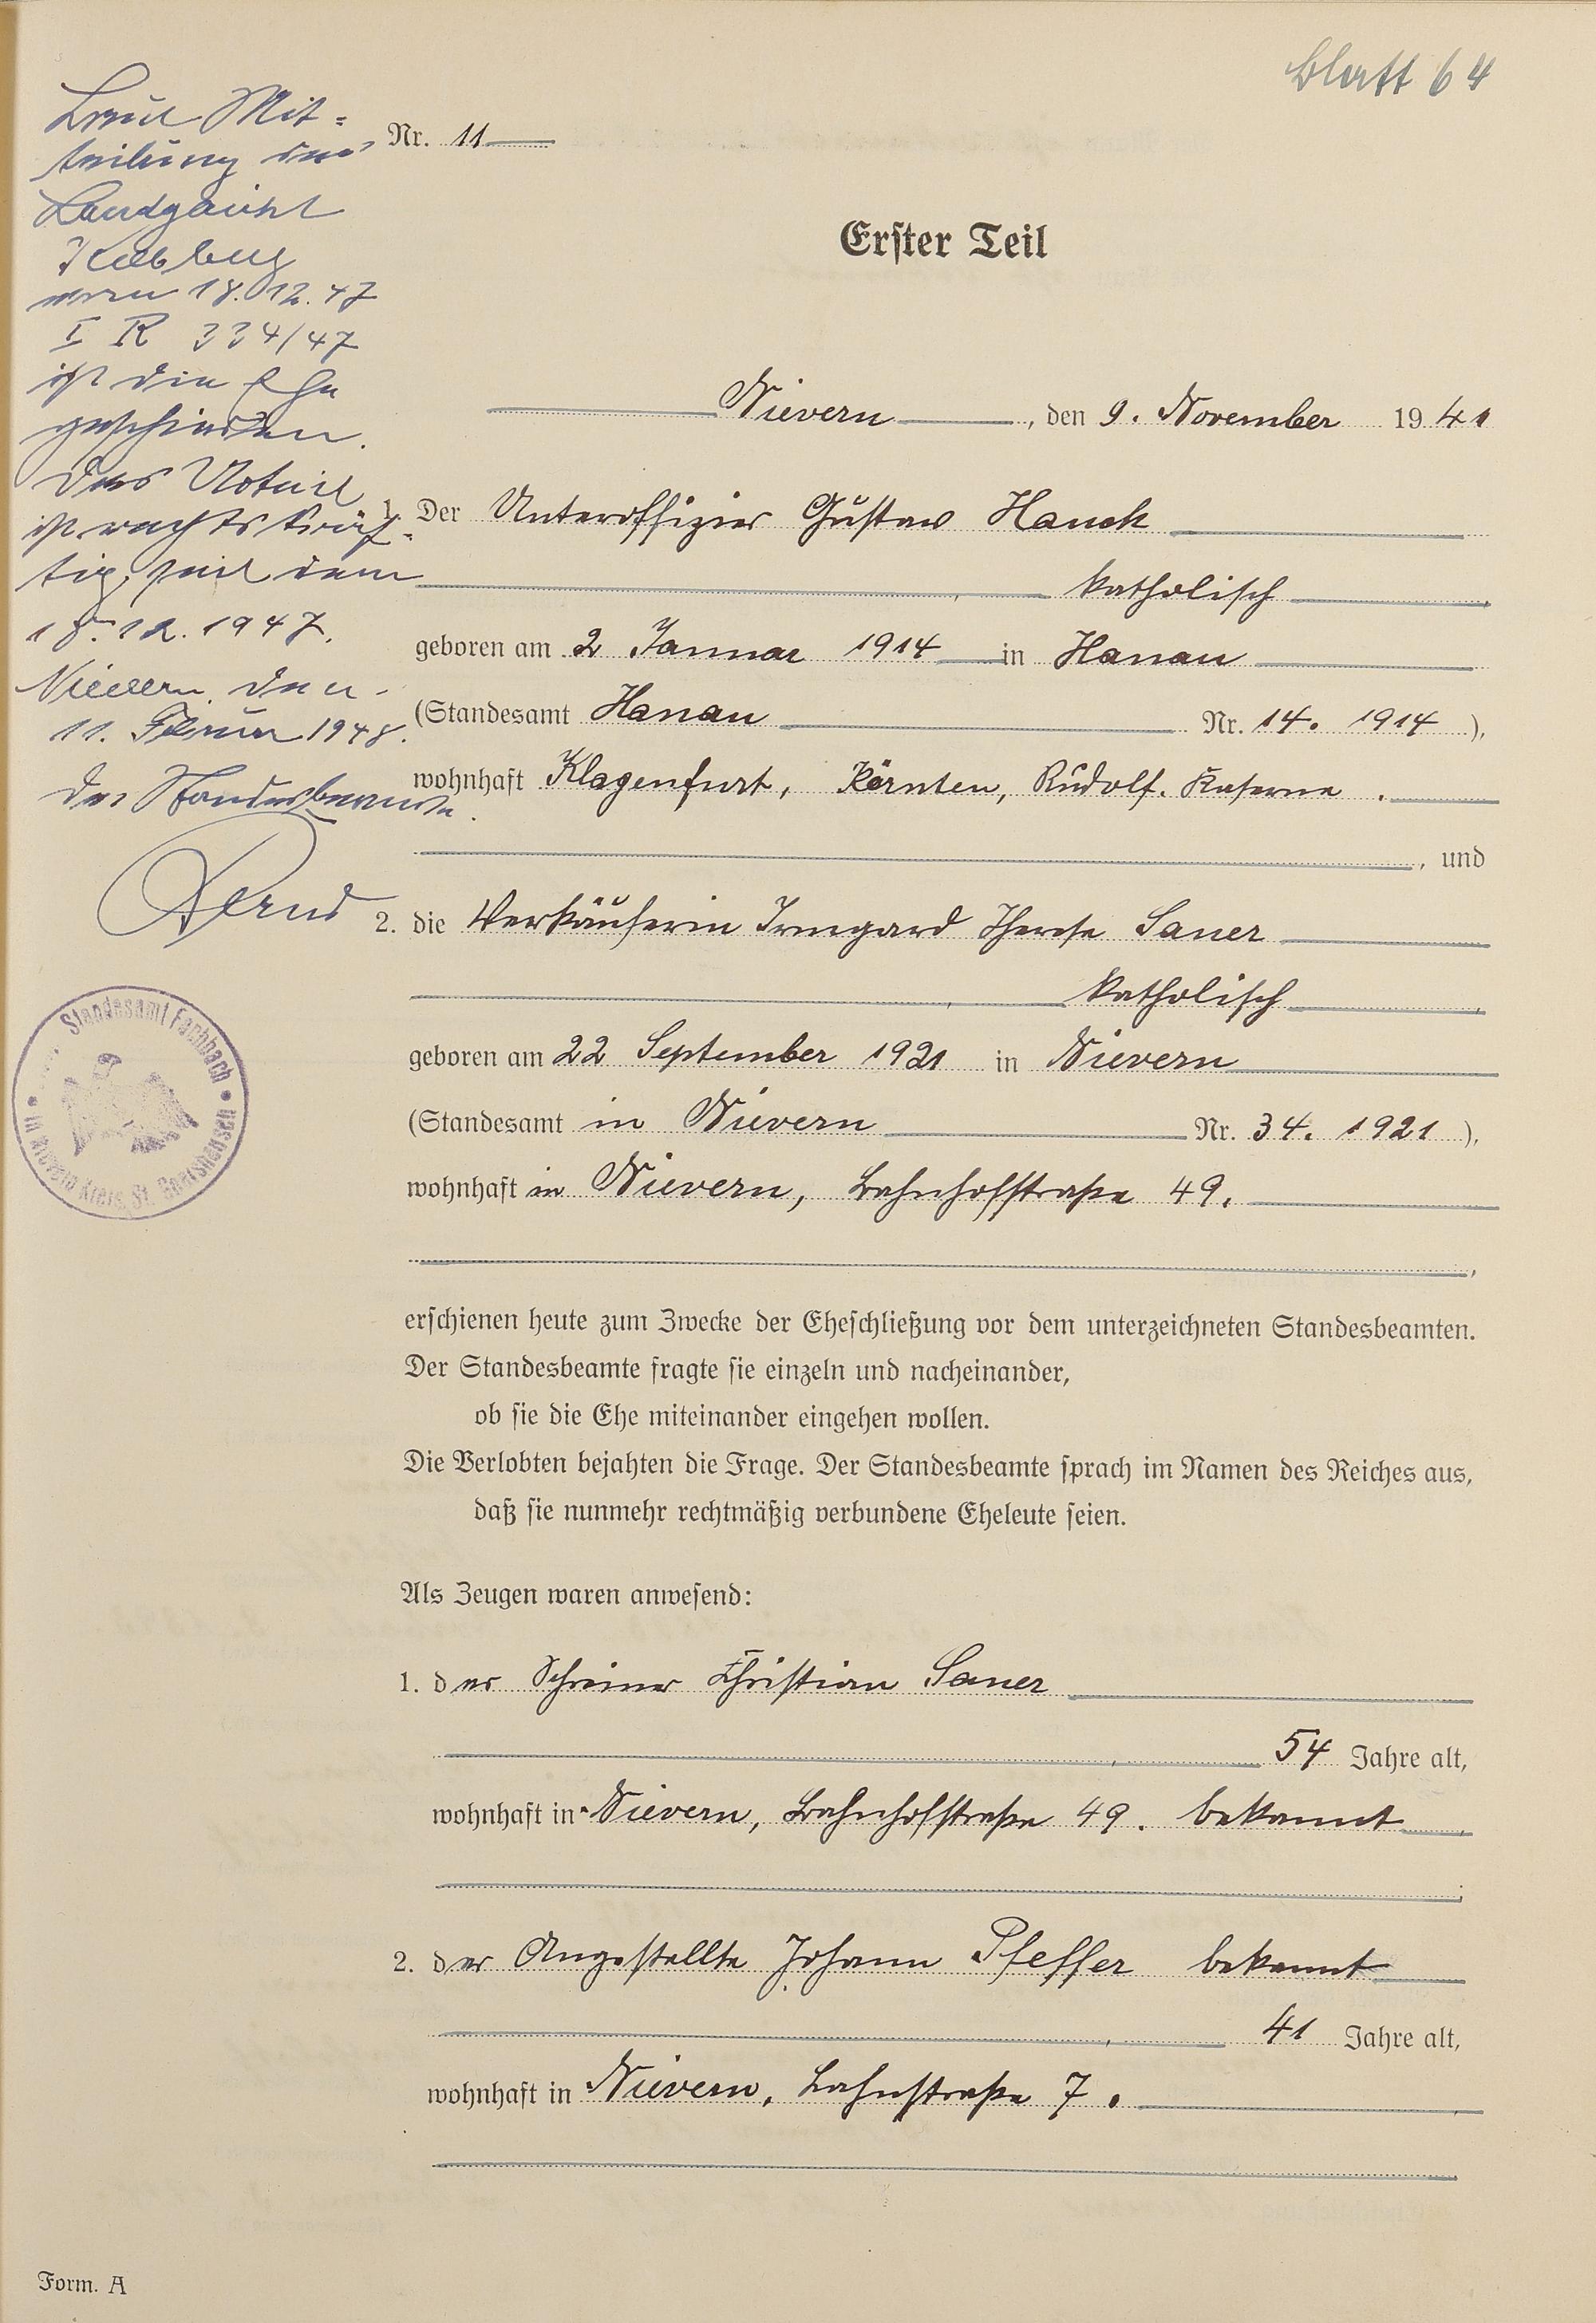 Blatt 64
Laut Mit=
teilung des
Landgericht
Koblenz
vom 18.12.47
I R 334/47
ist die Ehe
geschieden.
Das Urteil
ist rechtskräf=
tig seit dem
18.12.1947.
Nievern, den
11. Februar 1948.
Der Standesbeamte.
Standesamt Fachbach
in Nievern Kreis St. Goarshausen
Nr. 11
Erster Teil
Nievern, den 9. November 1941
1. Der Unteroffizier Gustav Hauck
katholisch
geboren am 2 Januar 1914 in Hanau
(Standesamt Hanau Nr. 14. 1914),
wohnhaft Klagenfurt, Kärnten, Rudolf. Kaserne.
, und
2. die Verkäuferin Irmgard Therese Sauer
katholisch
geboren am 22 September 1921 in Nievern
(Standesamt in Nievern Nr. 34. 1921),
wohnhaft in Nievern, Bahnhofstraße 49.
erschienen heute zum Zwecke der Eheschließung vor dem unterzeichneten Standesbeamten.
Der Standesbeamte fragte sie einzeln und nacheinander,
ob sie die Ehe miteinander eingehen wollen.
Die Verlobten bejahten die Frage. Der Standesbeamte sprach im Namen des Reiches aus,
daß sie nunmehr rechtmäßig verbundene Eheleute seien.
Als Zeugen waren anwesend:
1. der Schreiner Christian Sauer
54 Jahre alt,
wohnhaft in Nievern, Bahnhofstraße 49. bekannt
2. der Angestellte Johann Pfeffer bekannt
41 Jahre alt,
wohnhaft in Nievern, Lahnstraße 7.
Form. A